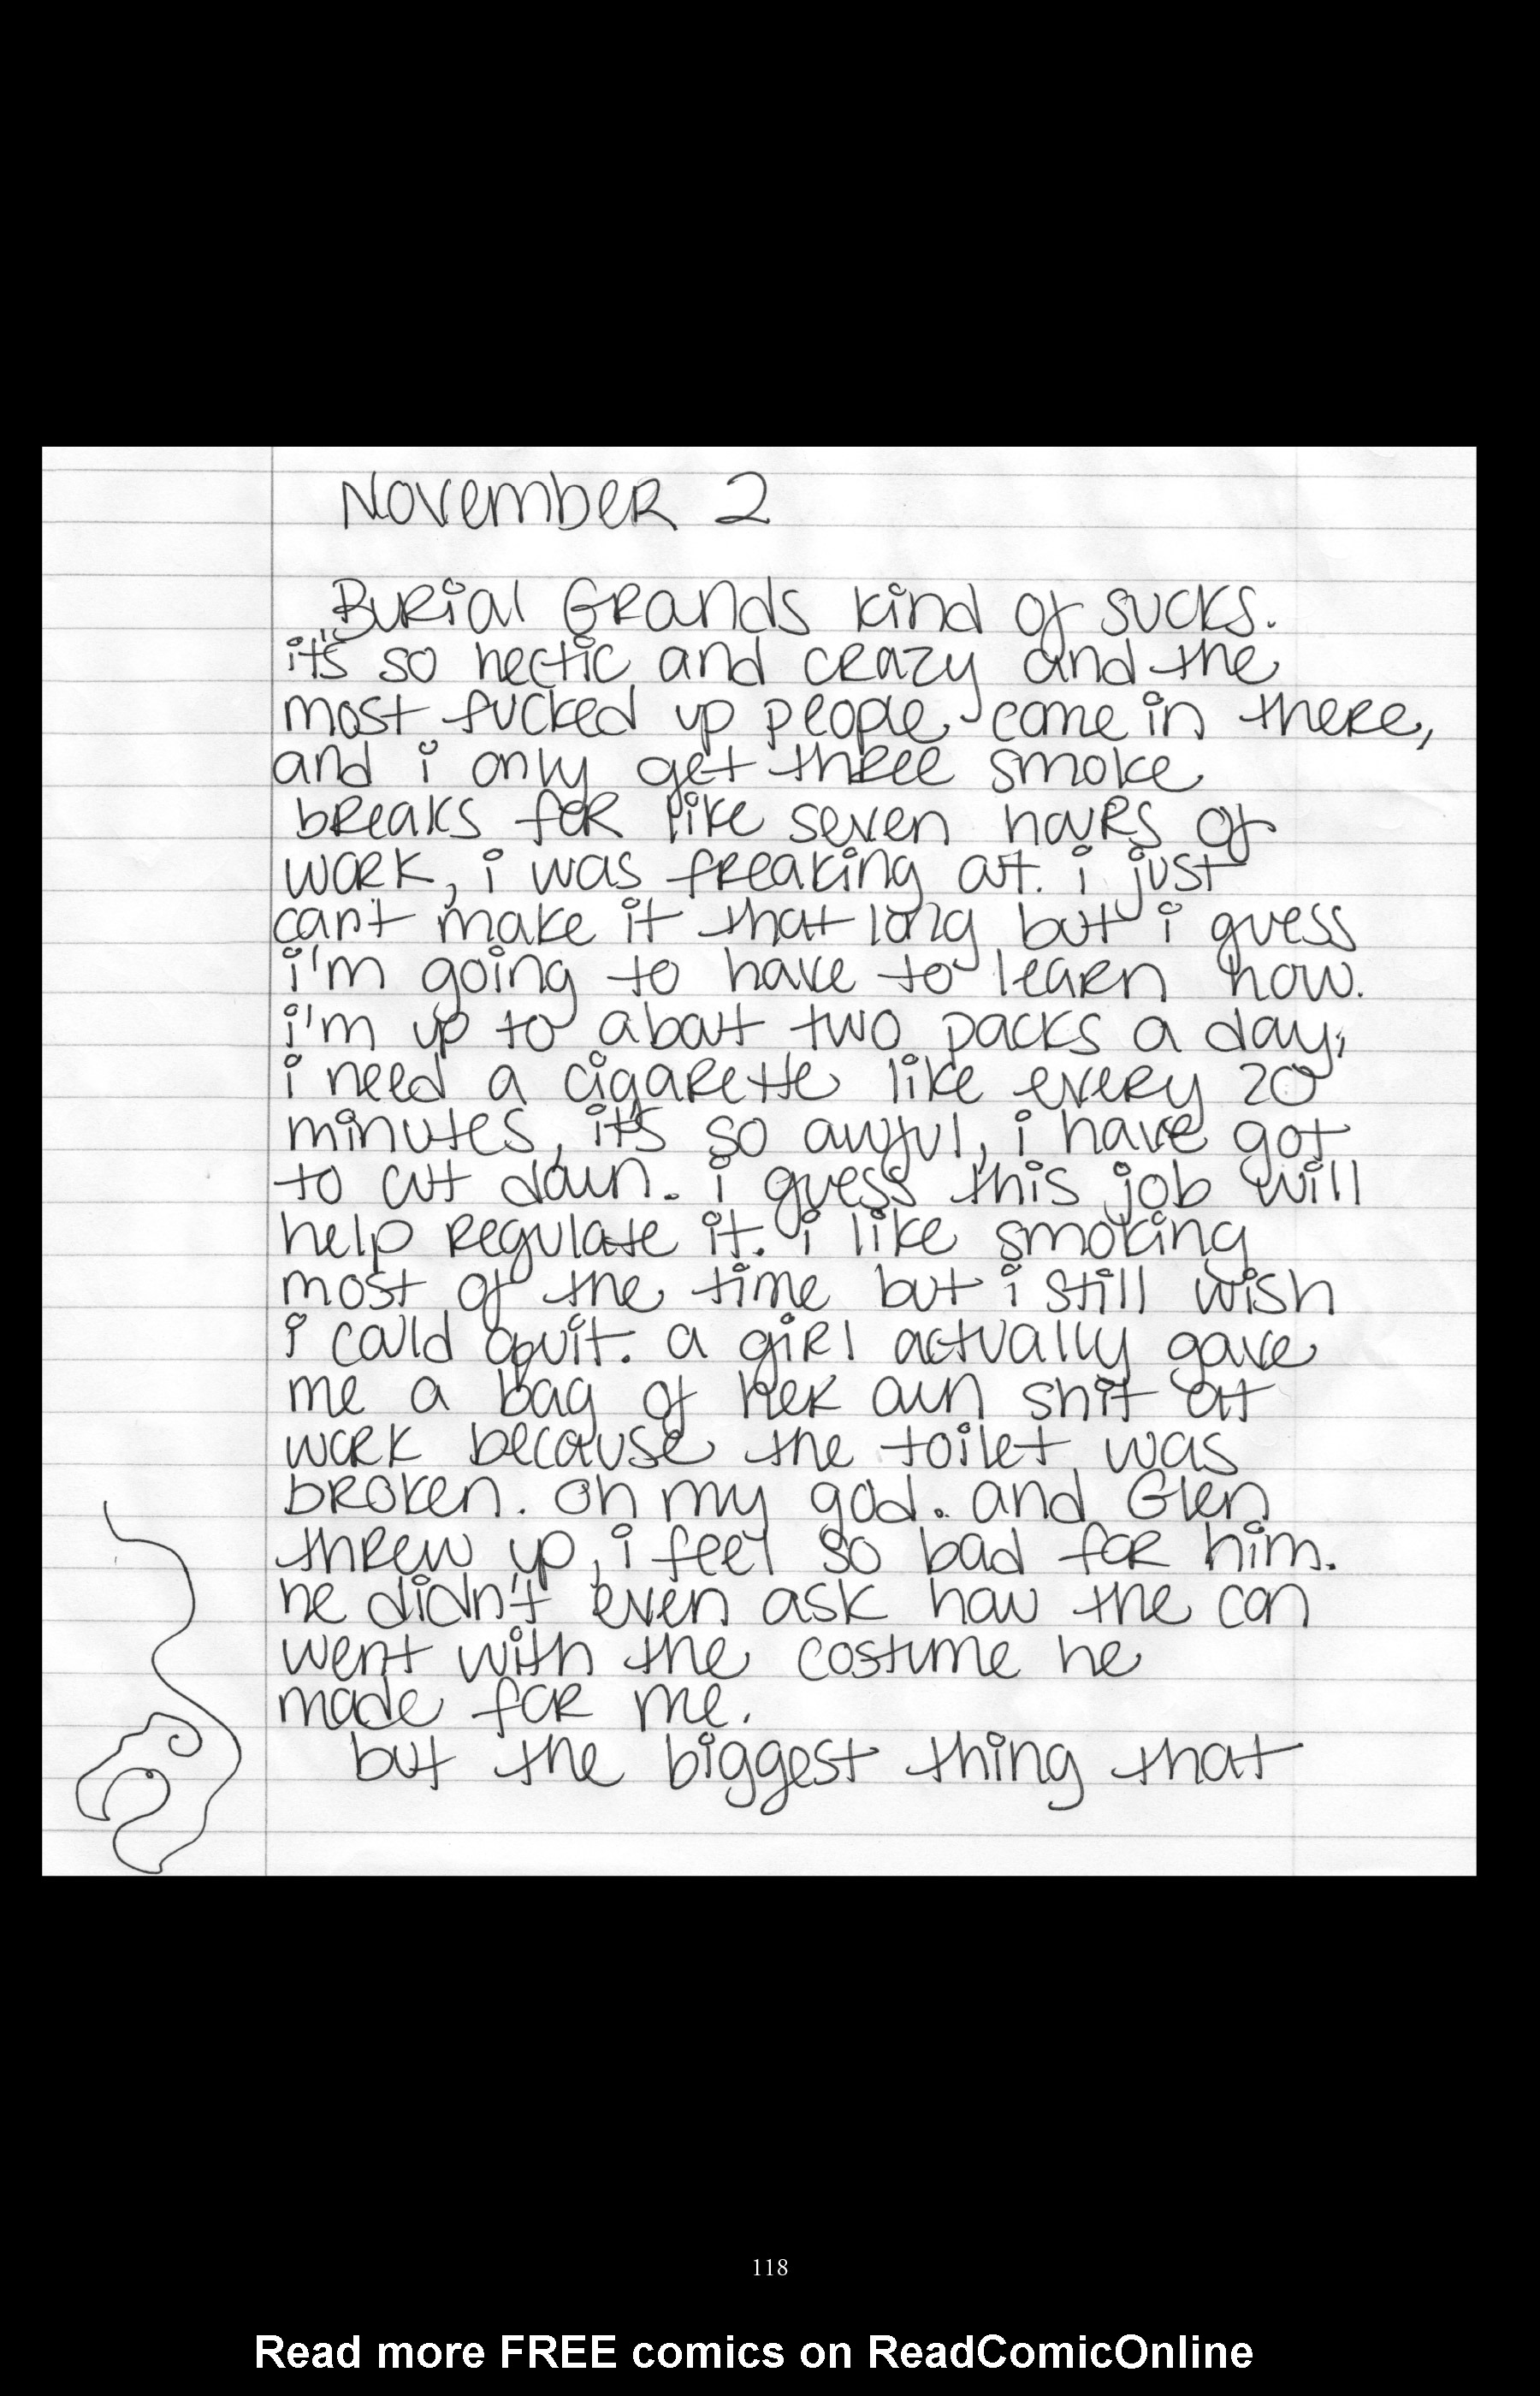 November 2
Burial Grounds kind of sucks.
it's so hectic and crazy and the
most fucked up people come in there,
and i only get three smoke
breaks for like seven hours of
work, i was freaking out. i just
can't make it that long but i guess
i'm going to have to learn how.
i'm up to about two packs a day,
i need a cigarette like every 20
minutes, it's so awful, i have got
to cut down. i guess this job will
help regulate it. i like smoking
most of the time but i still wish
i could quit. a girl actually gave
me a bag of her own shit at
work because the toilet was
broken. oh my god. and Glen
threw up, i feel so bad for him.
he didn't even ask how the con
went with the costume he
made for me.
but the biggest thing that
118
Read more FREE comics on ReadComicOnline